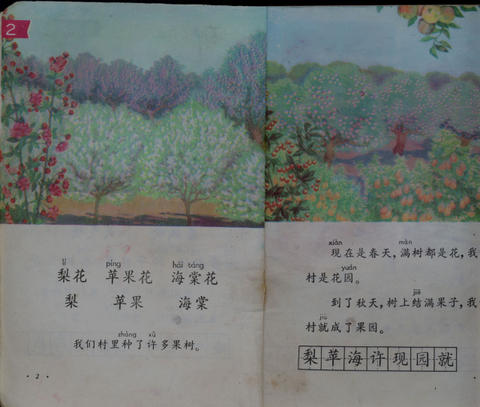 2
lí píng hǎi táng
梨花 苹果花 海棠花
梨 苹果 海棠
zhòng xǔ
我们村里种了许多果树。
· 2 ·
xiàn mǎn
现在是春天，满树都是花，我
yuán
村是花园。
jiē
到了秋天，树上结满果子，我
jiù
村就成了果园。
梨苹海许现园就